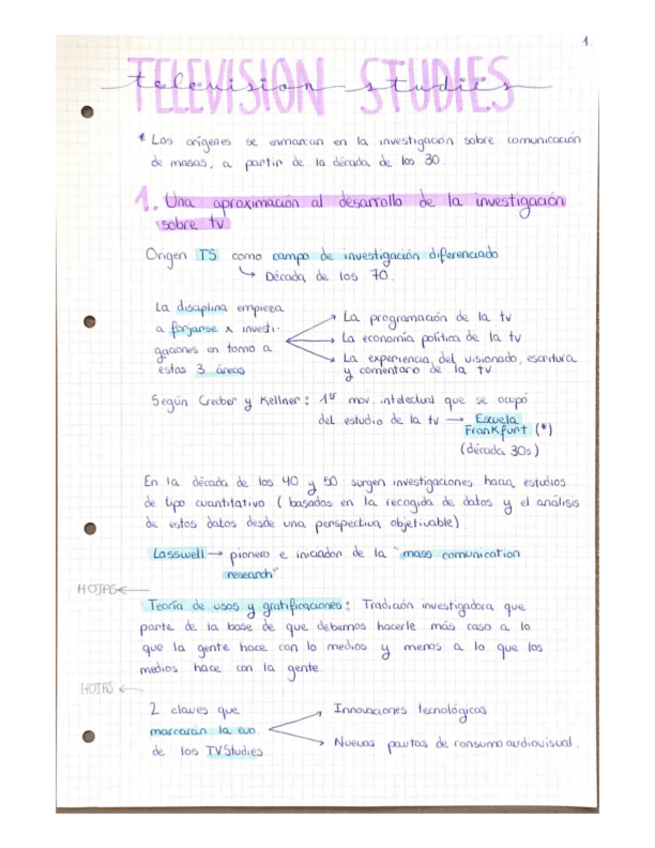 1.
TELEVISION STUDIES
television studies
* Los orígenes se enmarcan en la investigación sobre comunicación
de masas, a partir de la década de los 30.
1. Una aproximación al desarrollo de la investigación
sobre tv
Origen TS como campo de investigación diferenciado
↳ Década de los 70.
La disciplina empieza
a forjarse x investi-
gaciones en torno a
estas 3 áreas
→ La programación de la tv
→ La economía política de la tv
→ La experiencia del visionado, escritura
y comentario de la tv
Según Creeber y Kellner: 1er mov. intelectual que se ocupó
del estudio de la tv → Escuela
Frankfurt (*)
(década 30s)
En la década de los 40 y 50 surgen investigaciones hacia estudios
de tipo cuantitativo (basados en la recogida de datos y el análisis
de estos datos desde una perspectiva objetivable)
Lasswell → pionero e iniciador de la "mass comunication
research".
HOJAS ←
Teoría de usos y gratificaciones: Tradición investigadora que
parte de la base de que debemos hacerle más caso a lo
que la gente hace con lo medios y menos a lo que los
medios hace con la gente
HOJAS ←
2 claves que
marcarán la evo.
de los TVStudies
→ Innovaciones tecnológicas
→ Nuevas pautas de consumo audiovisual.